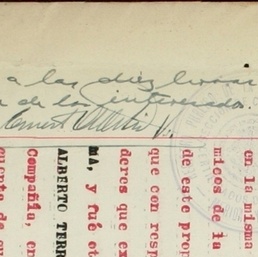 a las diez horas
de los interesados.
en la misma
micos de la
de este prop
que con resp
deres que ex
MA, y fué ot
ALBERTO TERR
Compañía, en
cuenta de cu